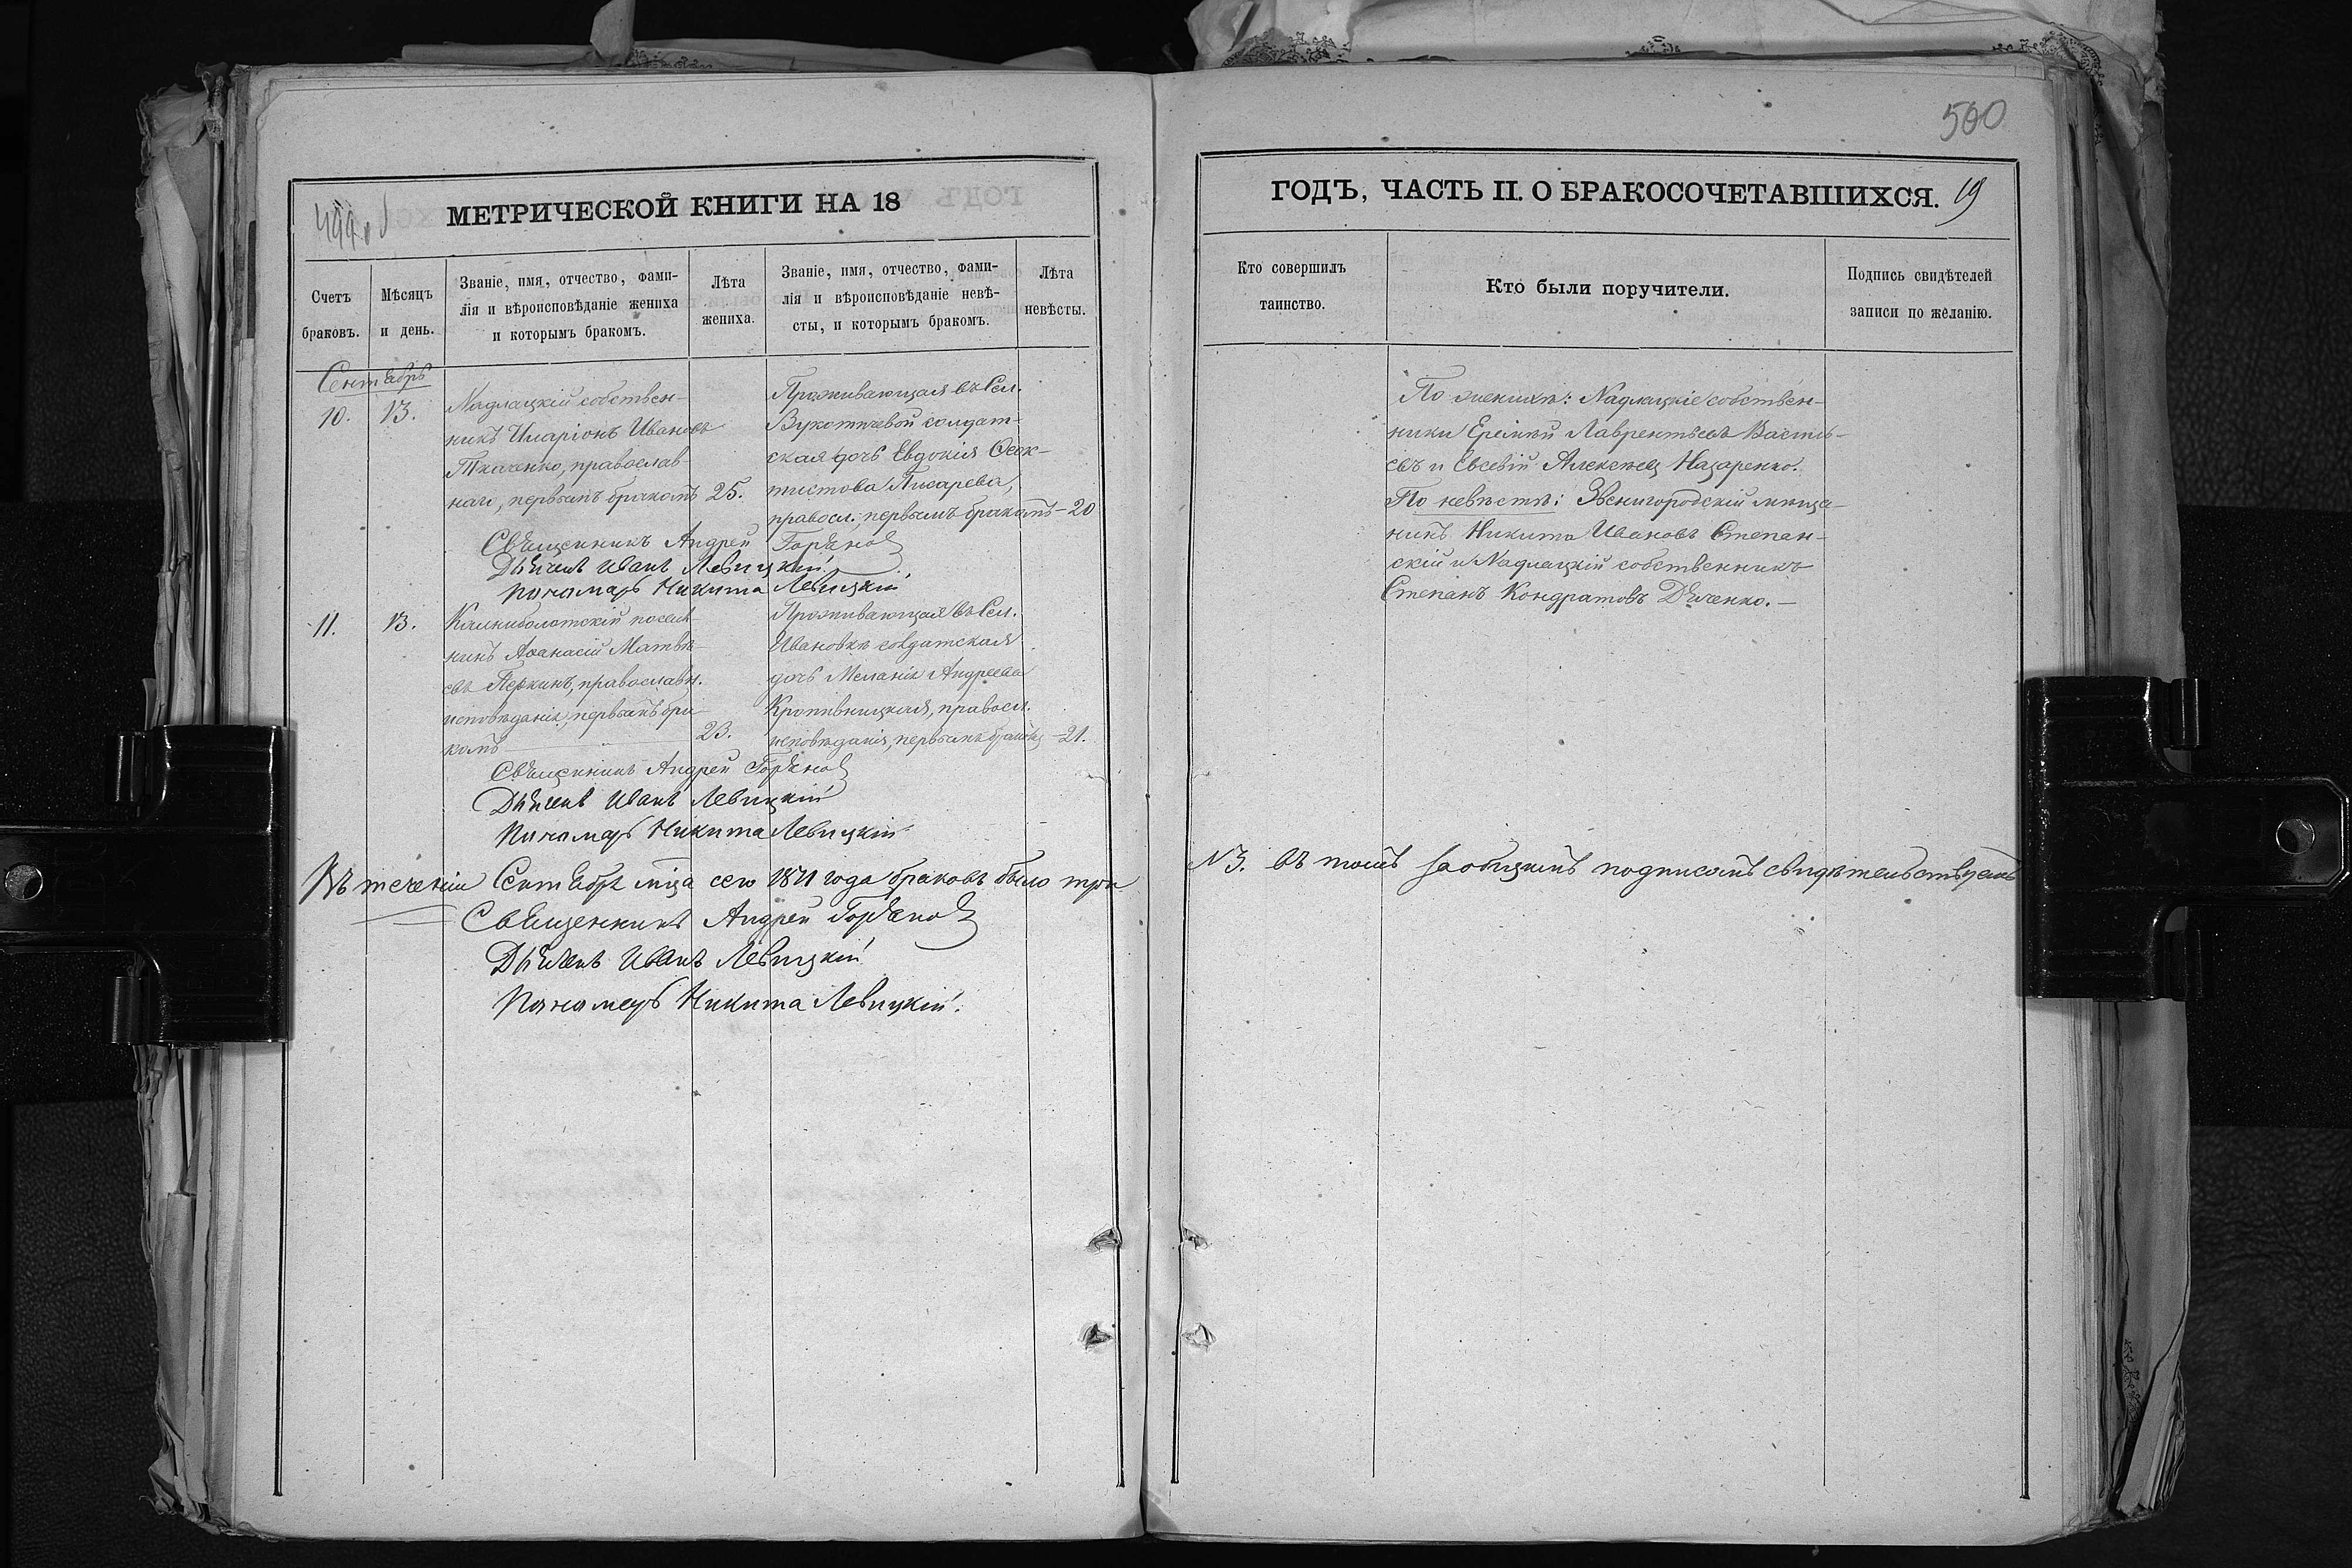 499об
МЕТРИЧЕСКОЙ КНИГИ НА 18
Счетъ браковъ.
Мѣсяцъ и день.
Званіе, имя, отчество, фами-
лія и вѣроисповѣданіе жениха
и которымъ бракомъ.
Лѣта
жениха.
Званіе, имя, отчество, фами-
лія и вѣроисповѣданіе невѣ-
сты, и которымъ бракомъ.
Лѣта
невѣсты.
Сентябрь
10. 13.
Надлацкій собствен-
никъ Иларіонъ Ивановъ
Ткаченко, православ-
наго, первымъ бракомъ 25.
Проживающая въ Сел.
солдат-
ская дочь Евдокія Ѳеок-
тистова Писарева,
правосл., первымъ бракомъ – 20
Священникъ Андрей Горяновъ
Дьячекъ Иванъ Левицкій
Пономарь Никита Левицкій
11. 13.
Калниболотскій поселя-
нинъ Аѳанасій Матвѣ-
евъ Перкинъ, православн.
исповѣданія, первымъ бра-
комъ 23.
Проживающая въ Сел.
Ивановкѣ солдатская
дочь Меланія Андреева
Кропивницкая, правосл.
исповѣданія, первымъ бракомъ – 21.
Священникъ Андрей Горяновъ
Дьячекъ Иванъ Левицкій
Пономарь Никита Левицкій
Въ теченіи Сентября мца сего 1871 года браковъ было три
Священникъ Андрей Горяновъ
Дьячекъ Иванъ Левицкій
Пономарь Никита Левицкій.
500
ГОДЪ, ЧАСТЬ II. О БРАКОСОЧЕТАВШИХСЯ. 19
Кто совершилъ
таинство.
Кто были поручители.
Подпись свидѣтелей
записи по желанію.
По женихѣ: Надлацкіе собствен-
ники Еремѣй Лаврентьевъ Василь-
евъ и Евсевій Алексѣевъ Назаренко.
По невѣстѣ: Звенигородскій мѣща-
нинъ Никита Ивановъ Степан-
скій и Надлацкій собственникъ
Степанъ Кондратовъ Дяченко. –
№ 3. въ томъ за общимъ подписомъ свидѣтельствуемъ